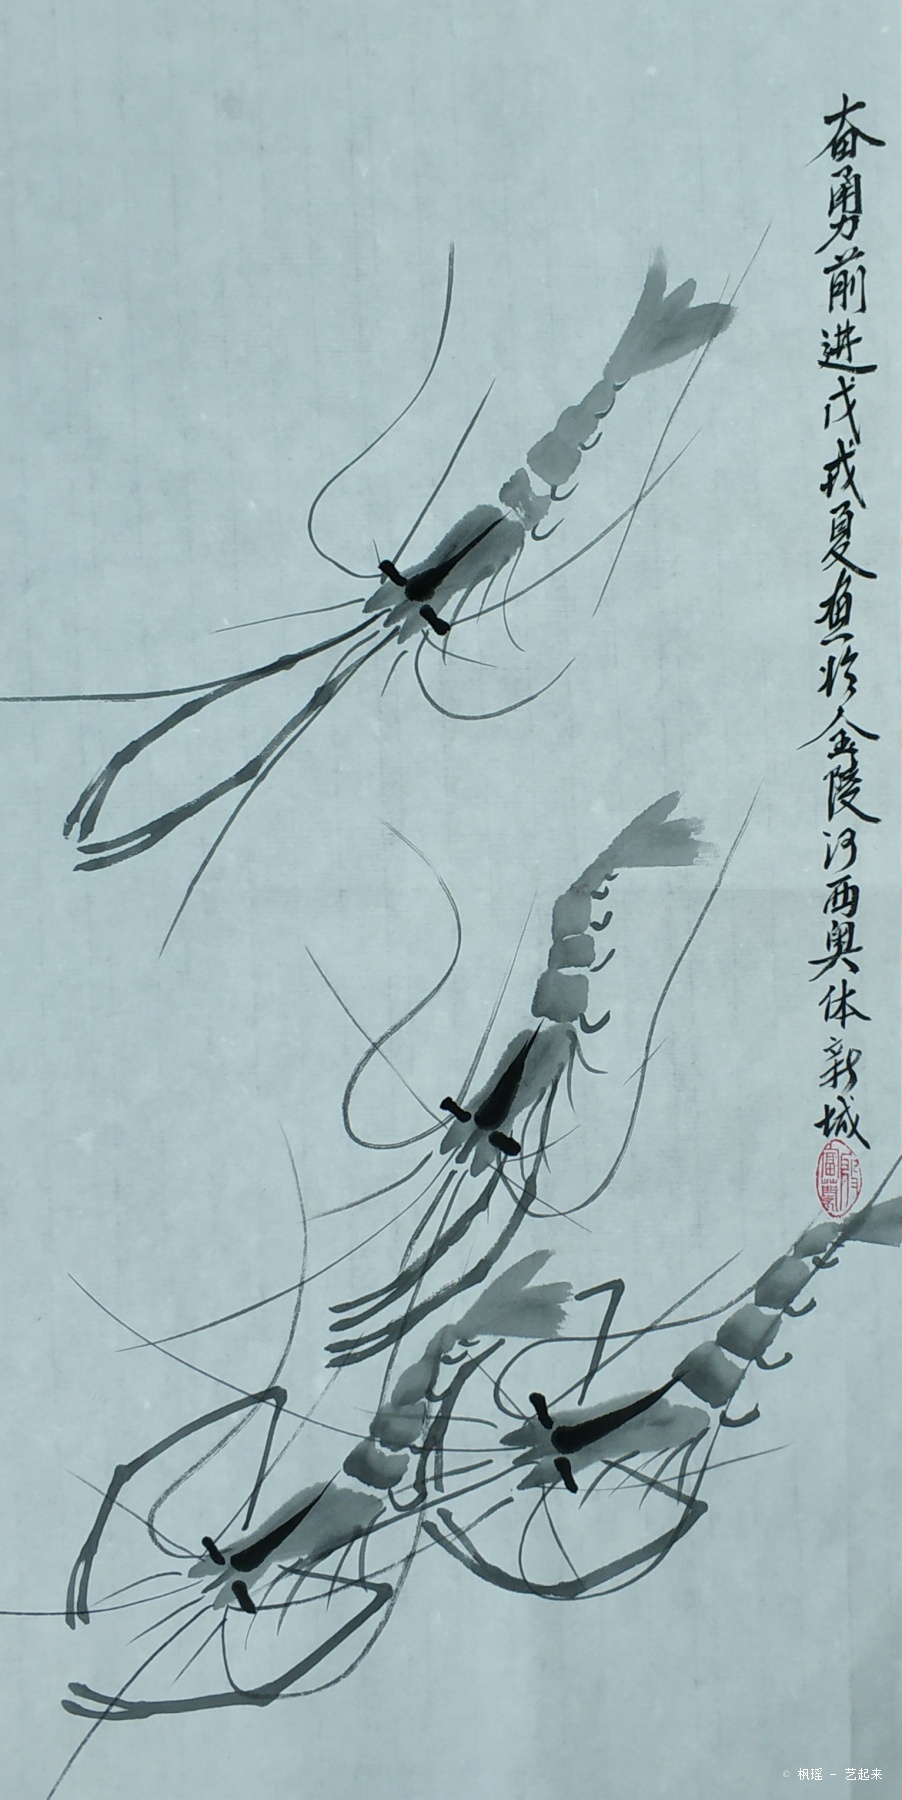 奋勇前进戊戌夏鱼於金陵河西奥体新城
© 枫瑶 - 艺起来